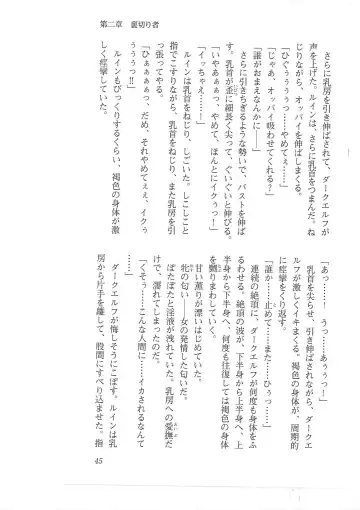 第二章 裏切り者
さらに乳房を引き伸ばされて、ダークエルフが
声を上げた。ルインは、さらに乳首をつまんだ。ね
じりながら、オッパイを伸ばしまくる。
「ひぐぅぅぅっ……やめてぇ……」
「じゃあ、オッパイ吸わせてくれる？」
「誰がおまえなんかに――」
さらに引きちぎるような勢いで、バストを伸ば
す。乳首が歪に細長く尖って、ぐいぐいと伸びる。
「あぁぁっ……いやっ、やめて、ほんとにイクゥっ！
「イッちゃえ……！」
ルインは乳首をねじり、しごいた。しこしこと
指でこすりながら、乳首をねじり、また乳房を引
っ張ってやる。
「ひぁぁぁぁっ、だめ、それやめてぇぇ、イクぅ
ぅぅぅっ！」
ルインもびっくりするくらい、褐色の身体が激
しく痙攣していた。
「あっ……うっ……あぅぅっ……」
乳首を尖らせ、引き伸ばされながら、ダークエ
ルフが激しくイキまくる。褐色の身体が、周期的
に痙攣をくり返す。
「誰か……止めて……また……ひぅっ……」
連続の絶頂に、ダークエルフが何度も身体をふ
るわせる。絶頂の波が、下半身から上半身へ、上
半身から下半身へ、何度も往復しては褐色の身体
を嬲りまわしていく。
甘い薫りが漂いはじめていた。
牝の匂い――女の発情した匂いだ。
ぽたぽたと淫液が洩れていた。乳房への愛撫だ
けで、濡れてしまったのだ。
「くそぅ……こんな人間に……イカされるなんて
……」
ダークエルフが悔しそうにこぼす。ルインは乳
房から片手を離して、股間にすべり込ませた。指
45